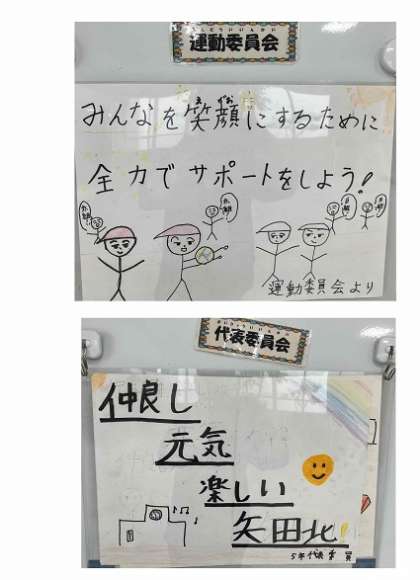 うんどういいんかい
運動委員会
えがお
みんなを笑顔にするために
全力でサポートをしよう!
運動委員会より
だいひょういいんかい
代表委員会
仲良し
元気
楽しい
矢田北!
5年代表委員